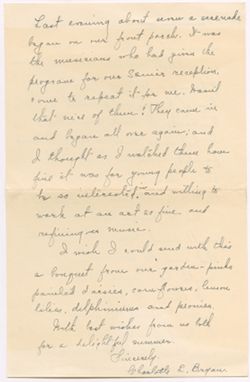 Last evening about seven a serenade
began on our front porch. It was
the musicians who had given the
program for our Senior reception,
come to repeat it for me. Wasn't
that nice of them! They came in
and began all over again; and
I thought as I watched them how
fine it was for young people to
be so interested, and willing to
work at an art so fine and
refining as music.
I wish I could send with this
a bouquet from our garden - pinks
painted daisies, cornflowers, lemon
lilies, delphiniums and peonies.
With best wishes from us both
for a delightful summer.
Sincerely
Charlotte L. Bryan